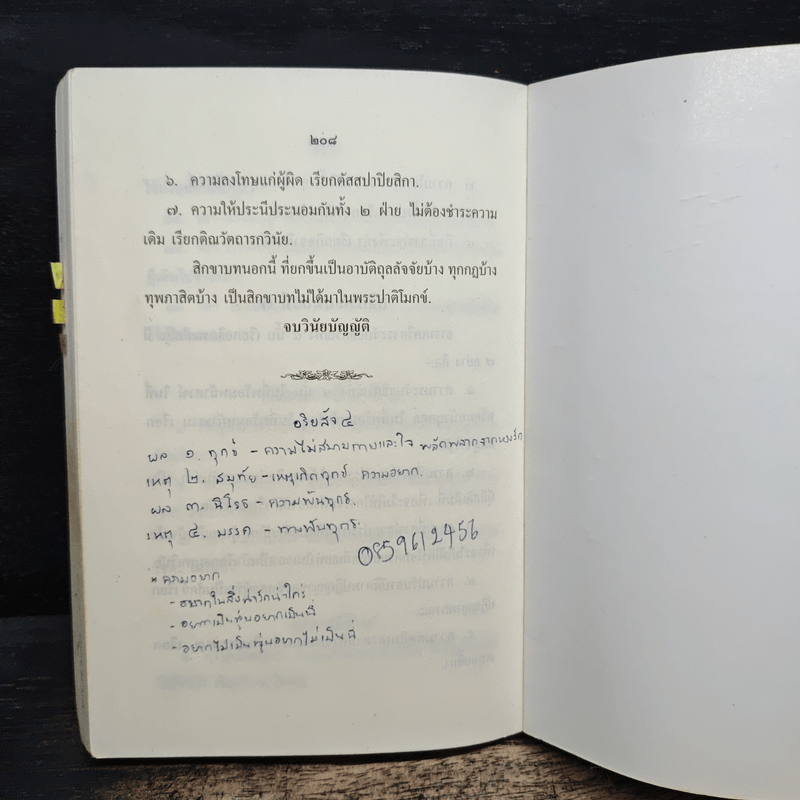 ๒๐๘
๖. ความลงโทษแก่ผู้ผิด เรียกตัสสปาปิยสิกา.
๗. ความให้ประนีประนอมกันทั้ง ๒ ฝ่าย ไม่ต้องชำระความ
เดิม เรียกติณวัตถารกวินัย.
สิกขาบทนอกนี้ ที่ยกขึ้นเป็นอาบัติถุลลัจจัยบ้าง ทุกกฎบ้าง
ทุพภาสิตบ้าง เป็นสิกขาบทไม่ได้มาในพระปาติโมกข์.
จบวินัยบัญญัติ
อริยสัจ ๔
ผล ๑. ทุกข์ - ความไม่สบายกายและใจ พลัดพลากจากของรัก
เหตุ ๒. สมุทัย - เหตุเกิดทุกข์ ความอยาก.
ผล ๓. นิโรธ - ความพ้นทุกข์.
เหตุ ๔. มรรค - ทางพ้นทุกข์.
0859612456
* ความอยาก
- อยากในสิ่งน่ารักน่าใคร่
- อยากเป็นนู่นอยากเป็นนี่
- อยากไม่เป็นนู่นอยากไม่เป็นนี่